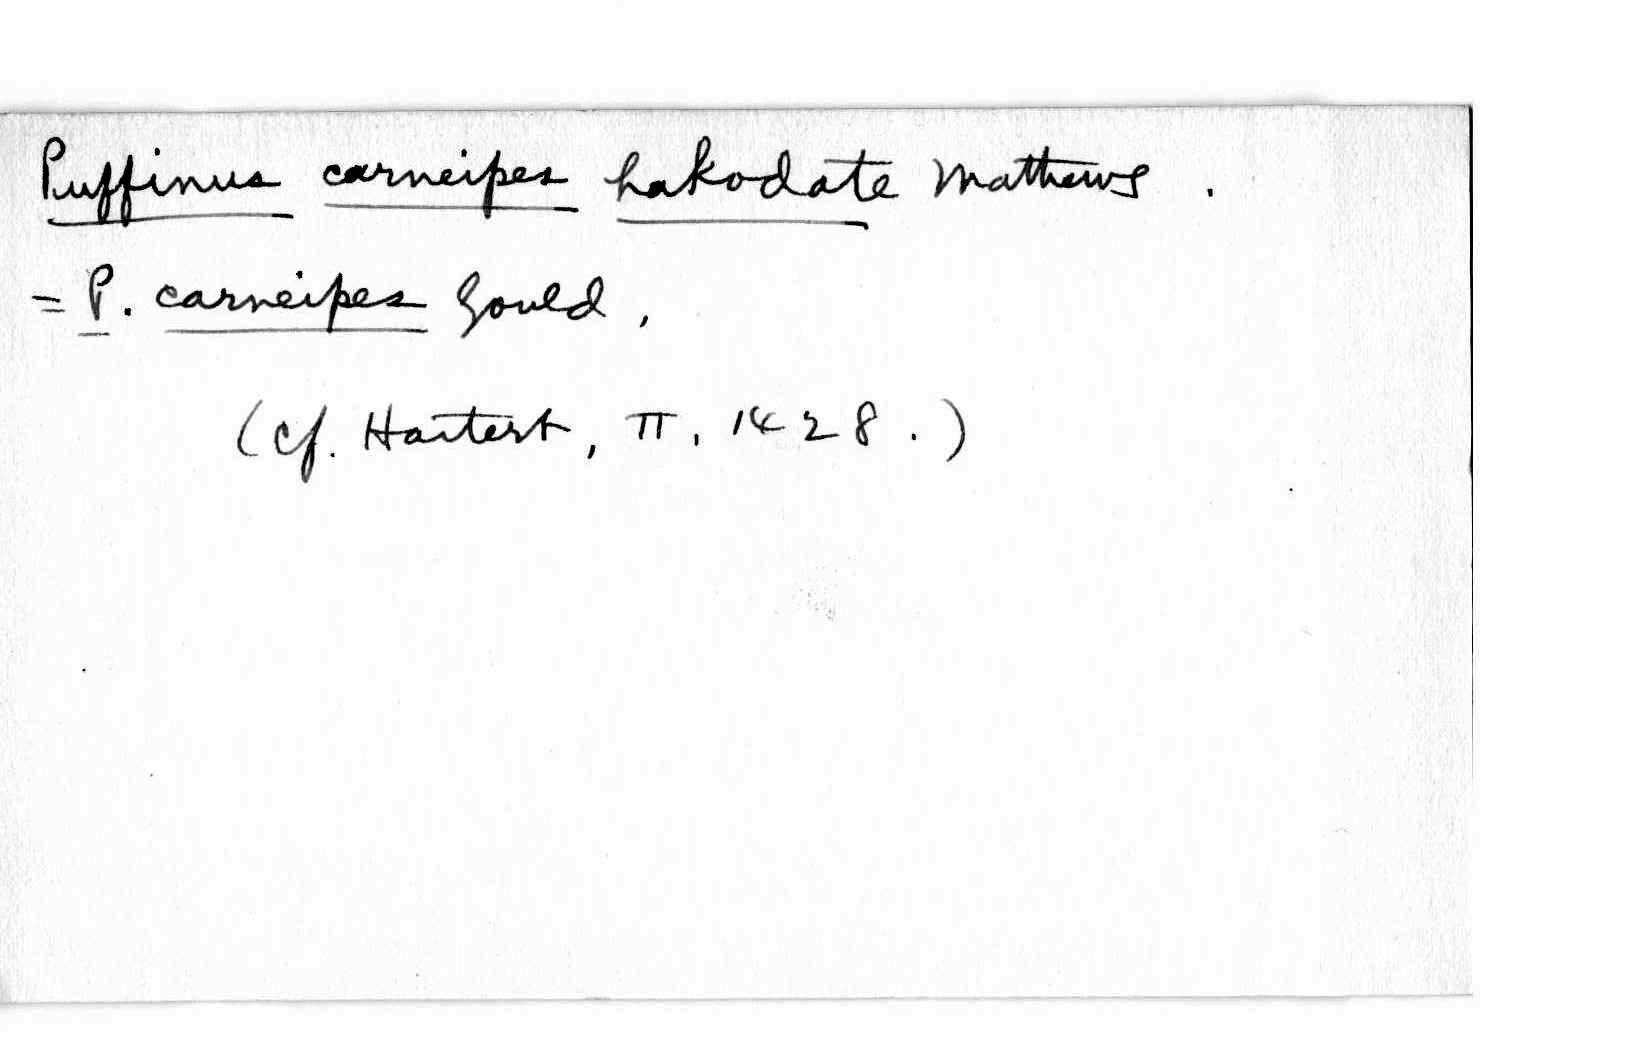 Puffinus carneipes hakodate Mathews.
= P. carneipes Gould,
(cf. Hartert, II, 1428.)